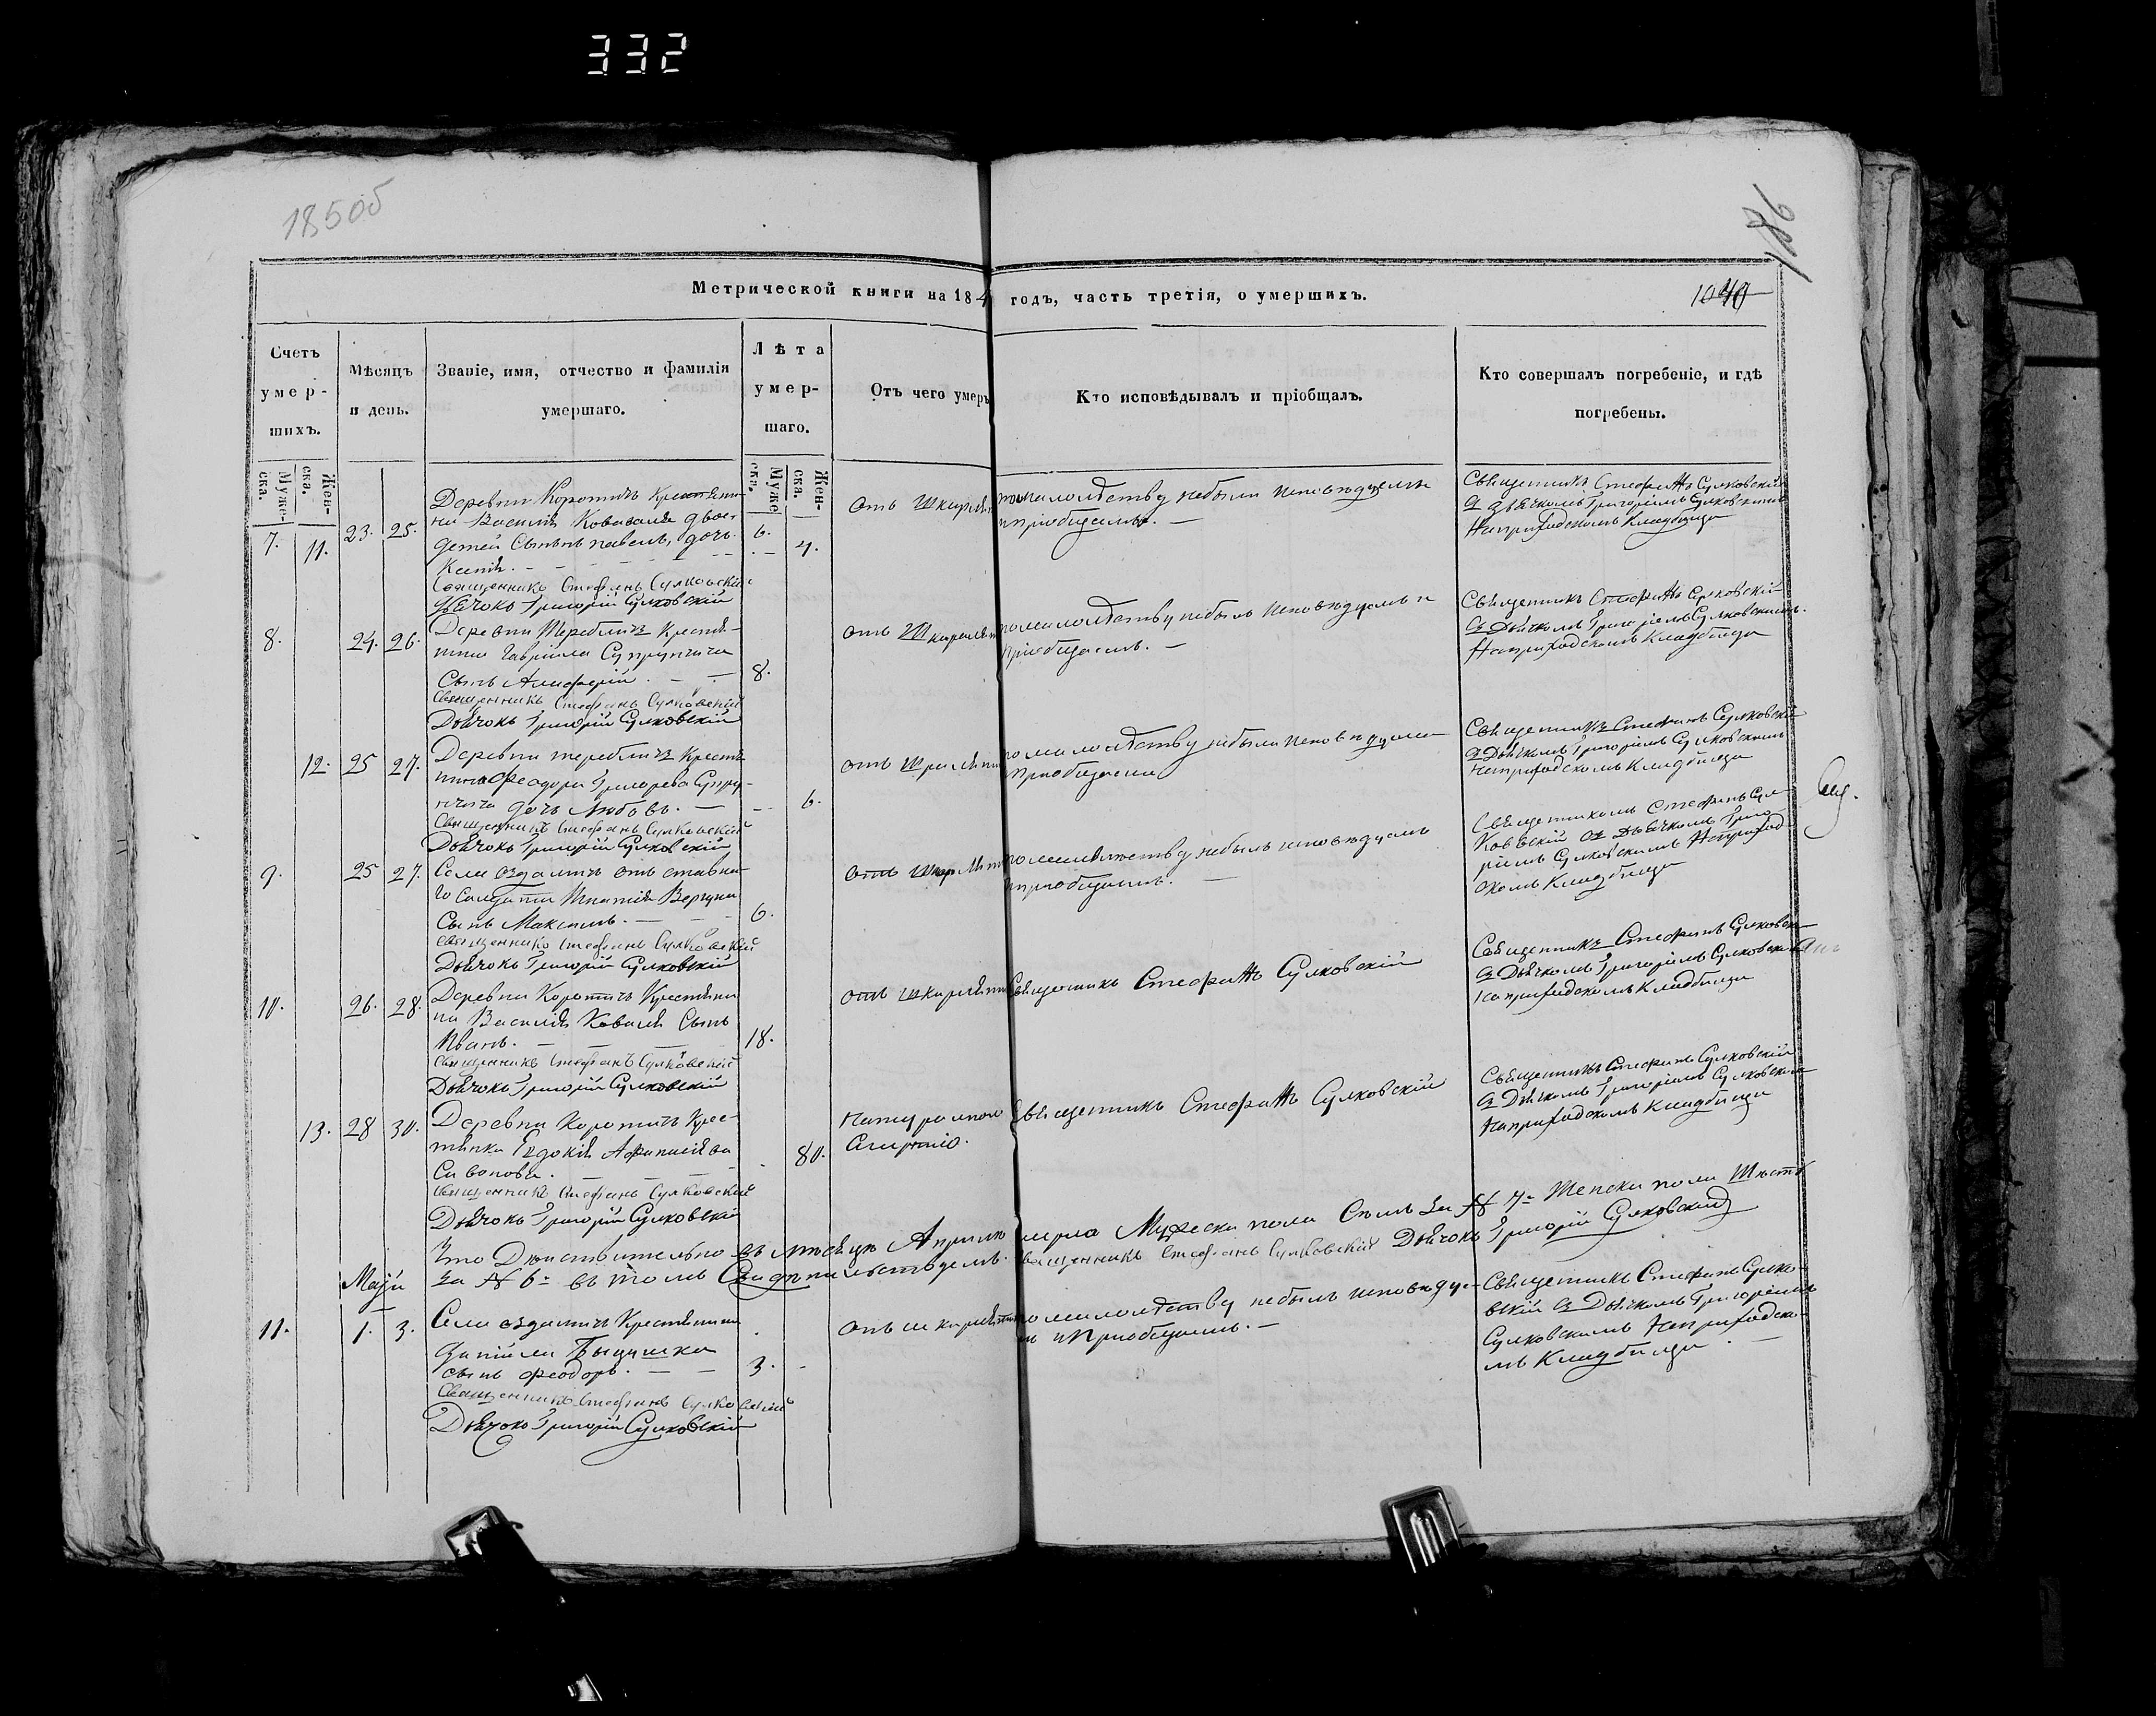 332
185об
186
Метрической книги на 184 годъ, часть третія, о умершихъ.
Счетъ умер-шихъ.
Мѣсяцъ и день.
Званіе, имя, отчество и фамилія умершаго.
Лѣта умер-шаго.
Отъ чего умеръ
Кто исповѣдывалъ и пріобщалъ.
Кто совершалъ погребеніе, и гдѣ погребены.
Муже-ска.
Жен-ска.
Муже-ска.
Жен-ска.
7. 11. 23. 25.
Деревни Коротичъ Крестяни-
на Василія Коваля двое
детей Сынъ павелъ, дочь
Ксенія.
6.
4.
Священникъ Стефанъ Сулковскій
Дьячокъ Григорій Сулковскій
по малолѣтству небыли исповѣдуемы
и пріобщаемы.
Священникъ Стефанъ Сулковскій
съ дьячкомъ Григоріемъ Сулковскимъ
На приходскомъ Кладбищи
8. 24. 26.
Деревни Теребличъ Крестя-
нина Гавріила Супрунчича
Сынъ
8.
Священникъ Стефанъ Сулковскій
Дьячокъ Григорій Сулковскій
по малолѣтству небылъ исповѣдуемъ и
пріобщаемъ.
Священникъ Стефанъ Сулковскій
съ Дьячкомъ Григоріемъ Сулковскимъ.
На приходскомъ Кладбищи
12. 25 27.
Деревни теребличъ Крестя
нина Феодора Григорева Супру-
нчича дочь Любовъ.
6.
Священникъ Стефанъ Сулковскій
Дьячокъ Григорій Сулковскій
по малолѣтству небыла исповѣдуема
и пріобщаема
Священникъ Стефанъ Сулковскій
съ Дьячкомъ Григоріемъ Сулковскимъ
На приходскомъ Кладбищи
9. 25 27.
Села оздамичъ отъ ставна
го Салдата Игнатія
Сынъ Максимъ.
6.
Священникъ Стефанъ Сулковскій
Дьячокъ Григорій Сулковскій
небылъ исповѣдуемъ
и пріобщаемъ.
Священникомъ Стефанъ Сул-
ковскій съ дьячкомъ Григо-
ріемъ Сулковскимъ На приход
скомъ Кладбищи
10. 26. 28.
Деревни Коротичъ Крестяни
на Василія Коваля Сынъ
Иванъ.
18.
Священникъ Стефанъ Сулковскій
Дьячокъ Григорій Сулковскій
Священникъ Стефанъ Сулковскій
Священникъ Стефанъ Сулковскі
съ Дьячкомъ Григоріемъ Сулковскимъ
На приходскомъ Кладбищи
13. 28 30.
Деревни Коротичъ Крес-
тянка Евдокія Афанасіева
80.
Священникъ Стефанъ Сулковскій
Дьячокъ Григорій Сулковскій
Натуральною
Смертію.
Священникъ Стефанъ Сулковскій
Священникъ Стефанъ Сулковскій
съ Дьячкомъ Григоріемъ Сулковскимъ
На приходскомъ Кладбищи
Что Дѣйствительно въ мѣсяцѣ Априлю умерло Мужеска пола Семъ За № 7= Женска пола Шесть
За № 6= въ томъ Свидѣтельствуемъ. Священникъ Стефанъ Сулковскій Дьячокъ Григорій Сулковскій
Маій
11. 1. 3.
Села оздамичъ Крестянина
сынъ Феодоръ.
3.
Священникъ Стефанъ Сулковскій
Дьячокъ Григорій Сулковскій
по малолѣтству небылъ исповѣдуе-
мъ и Пріобщаемъ.
Священникъ Стефанъ Сулко-
вскій съ Дьячкомъ Григоріемъ
Сулковскимъ На приходско-
мъ Кладбищи